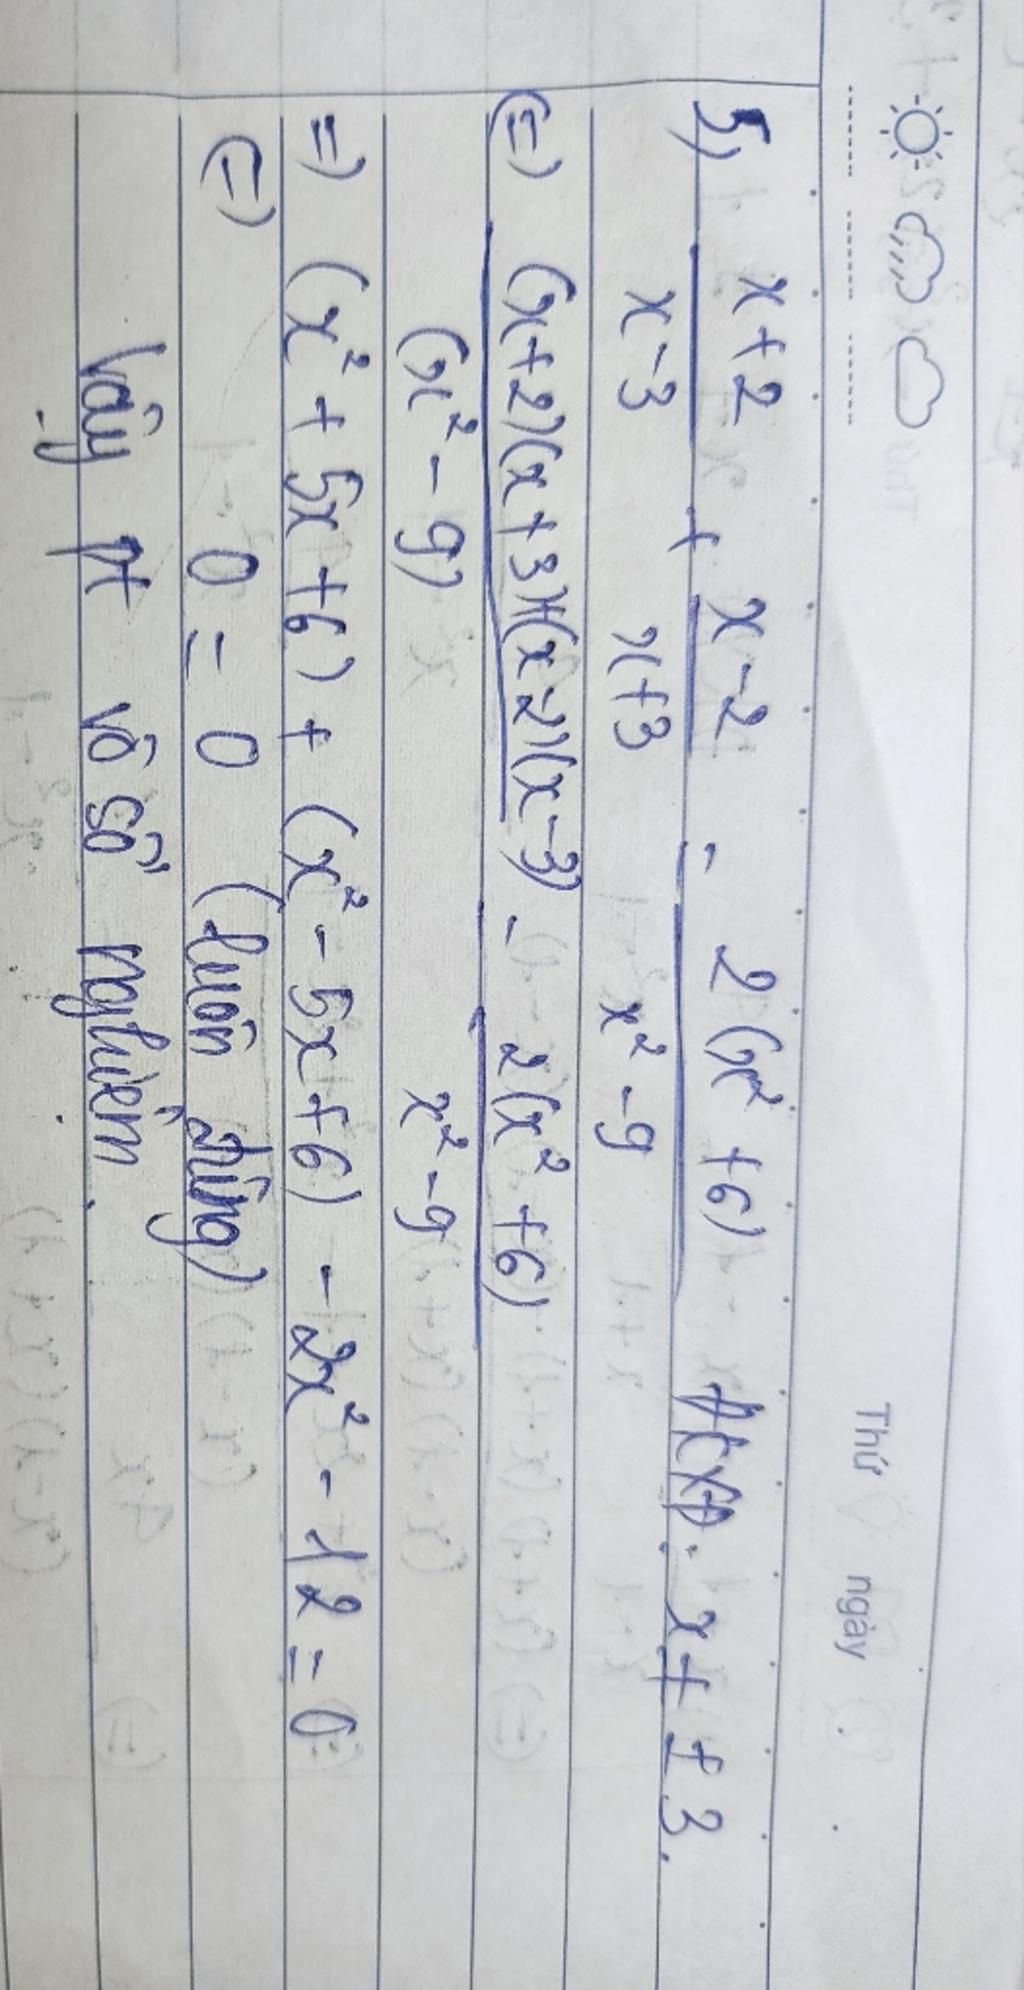 Thứ ngày
5) \frac{x+2}{x-3} + \frac{x-2}{x+3} = \frac{2(x^2+6)}{x^2-9} ĐKXĐ: x ≠ ±3.
(=) \frac{(x+2)(x+3)+(x-2)(x-3)}{(x^2-9)} - \frac{2(x^2+6)}{x^2-9}
=) (x^2 + 5x + 6) + (x^2 - 5x + 6) - 2x^2 - 12 = 0
(=) 0 = 0 (luôn đúng)
Vậy pt vô số nghiệm.